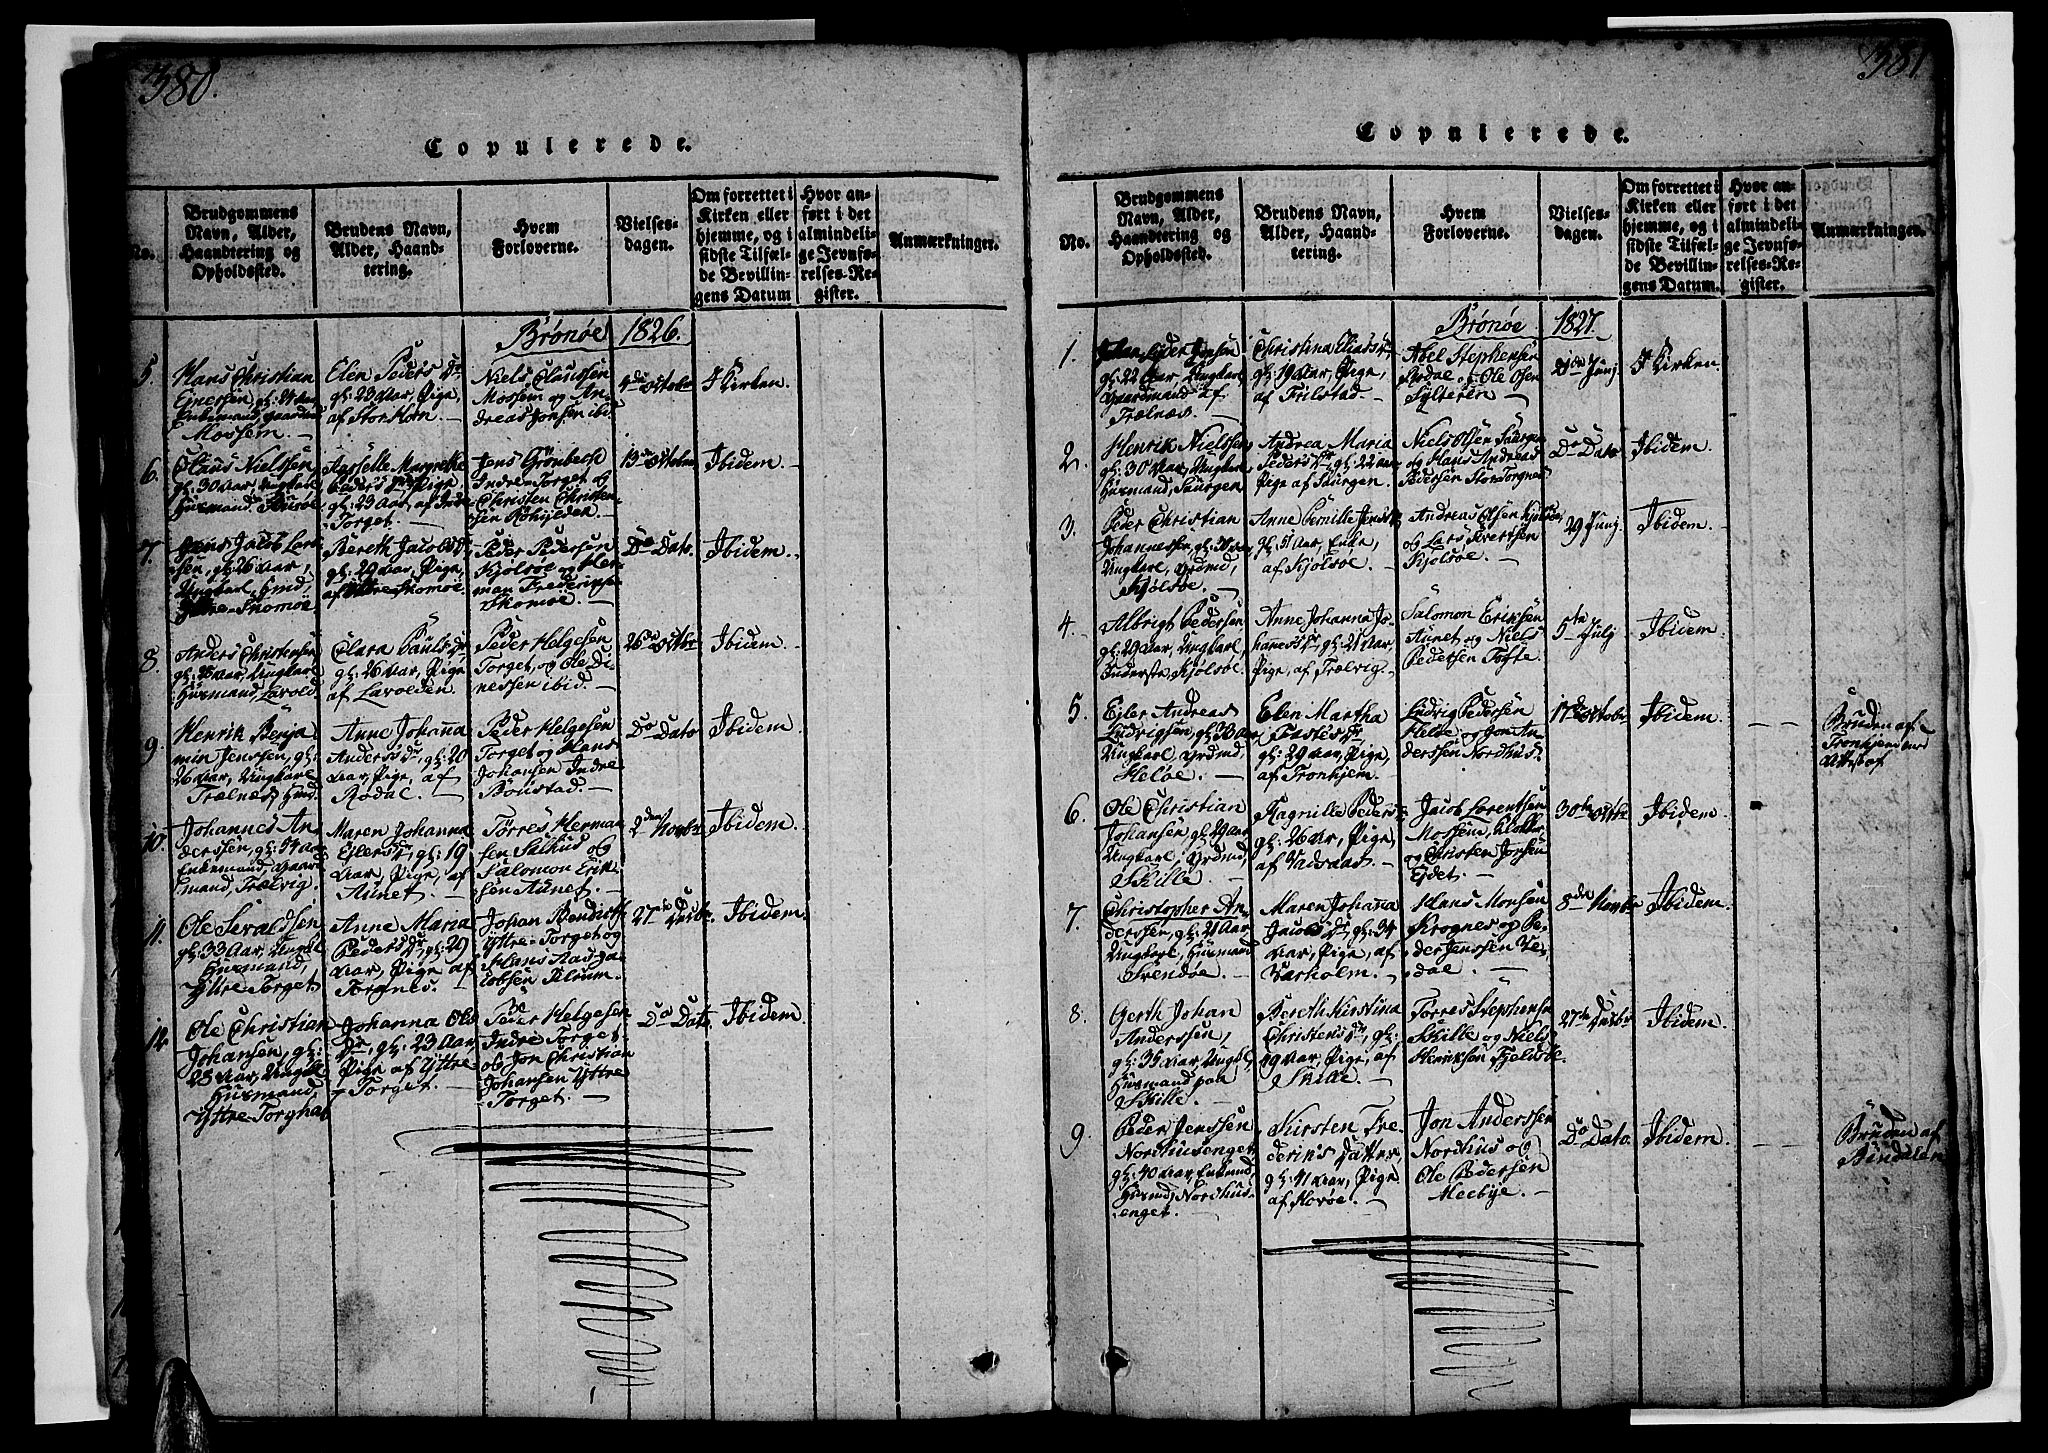 380.
Copulerede.
No.
Brudgommens
Navn, Alder,
Haandtering og
Opholdssted.
Brudens Navn,
Alder, Haand-
tering.
Hvem
Forloverne.
Vielses-
dagen.
Om forrettet i
Kirken eller
hjemme, og i
sidste Tilfæl-
de Bevillin-
gens Datum
Hvor an-
ført i det
almindeli-
ge Jevnfø-
relses-Re-
gister.
Anmærkninger.
Brønøe 1826.
5.
Hans Christian
Einersen, gl:
Enkemand, gaardmd
Mossem.
Elen Peders Dr
gl: 23 Aar, Pige,
af Stor Horn
Niels Claussen
Mossem og An-
dreas Jonsen ibid
4de Octobr
I Kirken.
6.
Claus Nielsen,
gl: 30 Aar, Ungkarl
Huusmand
Margrethe
Peders Dr, Pige
gl: 23 Aar, af Indre
Torget.
Jens Grønbech
Indre-Torget og
Christen Christen-
sen
13de Octobr
Ibidem.
7.
Jens Jacob Lar-
sen, gl: 26 Aar,
Ungkarl, Hmd,
Yttre-Skomøe
Bereth Jacobs Dr
gl: 29 Aar, Pige,
af Yttre-Skomøe
Peder Pedersen
Kjølsøe og Her-
man Frederiksen
Skomøe.
Do Dato.
Ibidem.
8
Anders Christensen
gl: Aar, Ungkarl
Huusmand, Lavold
Clara Pauls Dr
gl: 26 Aar, Pige
af Lavolden.
Peder Helgesen
Torget, og Ole Di-
nessen ibid.
26de Octbr
Ibidem.
9.
Henrik Benja-
min Jenssen, gl:
26 Aar, Ungkarl
Trælnæs, Hmd.
Anne Johanna
Anders Dr, gl: 20
Aar, Pige, af
Rodal.
Peder Helgesen
Torget og Hans
Johansen Indre
Bønstad.
Do Dato
Ibidem.
10.
Johannes An-
derssen, gl: 54 Aar
Enkemand, Gaard-
mand, Trælvig.
Maren Johanna
Ejlers Dr, gl: 19
Aar, Pige, af
Aunet.
Tørres Herman-
sen Salhus og
Salomon Erik-
sen Aunet.
2den Novbr
Ibidem.
11.
Ole Sivaldsen
gl: 33 Aar, Ungkl
Huusmand,
Yttre Torget.
Anne Maria
Peders Dr, gl: 29
Aar, Pige af
Torgnes.
Johan Bendixen
Yttre-Torget og
Hans Aad Ja-
cobsen Tilrum.
27de Decbr.
Ibidem.
12.
Ole Christian
Johansen, gl:
25 Aar, Ungkl
Huusmand,
Yttre-Torghat
Johanna Ols
Dr, gl: 23 Aar
Pige af Yttre
Torget.
Peder Helgesen
Indre Torget
og Jon Christian
Johansen Yttre
Torget.
Do Dato.
Ibidem.
381
Copulerede.
No.
Brudgommens
Navn, Alder,
Haandtering og
Opholdssted.
Brudens Navn,
Alder, Haand-
tering.
Hvem
Forloverne.
Vielses-
dagen.
Om forrettet i
Kirken eller
hjemme, og i
sidste Tilfæl-
de Bevillin-
gens Datum.
Hvor an-
ført i det
almindeli-
ge Jevnfø-
relses-Re-
gister.
Anmærkninger.
Brønøe 1827.
1.
Johan Ejder Jonsen
gl: 22 Aar, Ungkarl,
Gaardmand af
Trælnæs.
Christina Elias Dr
gl: 19 Aar, Pige,
af Frilstad.
Abel Stephensen
Rodal og Ole Olsen
Sylteren.
Junj
I Kirken.
2.
Henrik Nielssen
gl: 30 Aar, Ungkarl
Huusmand, Saurgen
Andrea Maria
Peders Dr, gl: 22 Aar
Pige af Saurgen.
Niels Olsen Saurgen
og Hans Andreas
Pedersen Stor Torgnes
Do Dato
Ibidem.
3.
Peder Christian
Johannessen, gl: Aar
Ungkarl, Grdmd,
Kjølsøe.
Anne Pernille Jens Dr
gl: 51 Aar, Enke,
af Kjølsøe.
Andreas Olsen Kjølsøe,
og Lars Evertsen
Kjølsøe.
29 Junj.
Ibidem.
4.
Albrigt Pedersen
gl: 29 Aar, Ungkarl,
Inderste, Kjølsøe.
Anne Johanna Jo-
hannes Dr, gl: 21 Aar
Pige, af Trælvig.
Salomon Eriksen
Aunet og Niels
Pedersen Tofte.
5te Julj
Ibidem.
5.
Ejler Andreas
Ludvigsen, gl: 33 Aar
Ungkarl, Grdmd,
Heløe.
Elen Martha
Fastes Dr
gl: 29 Aar, Pige,
af Tronhjem.
Ludvig Pedersen
Heløe og Jon An-
derssen Nordhus.
17de Octobr
Ibidem.
Bruden af
Tronhjem med
Attest af
6.
Ole Christian
Johansen, gl: 29 Aar
Ungkarl, Grdmd,
Skille.
Ragnille Peders Dr
gl: 26 Aar, Pige,
af Vadsaas.
Jacob Lorentsen
Mossem, Klokker
og Christen Jonsen
Ejdet.
30te Octbr
Ibidem.
7.
Christopher An-
derssen, gl: 21 Aar
Ungkarl, Huusmand
Trendøe
Maren Johanna
Jacobs Dr, gl: 34
Aar, Pige, af
Varholm.
Hans Monsen
Krognes og Pe-
der Jenssen Ve-
dal
8de Novbr
Ibidem.
8.
Gerth Johan
Anderssen,
gl: 35 Aar, Ungkl,
Huusmand paa
Skille.
Bereth Kirstina
Christens Dr, gl:
29 Aar, Pige, af
Skille.
Torres Stephensen
Skille og Niels
Henriksen Fjeldsøe.
27de Decbr
Ibidem.
9.
Peder Jenssen
Nordhusenget
gl: 40 Aar, Enkmd
Husmd, Nordhus-
enget.
Kirsten Fre-
deriks Datter
gl: 41 Aar, Pige
af Horsøe.
Jon Anderssen
Nordhus og
Ole Pedersen
Meebye.
Do Dato.
Ibidem.
Bruden af
Bindalen